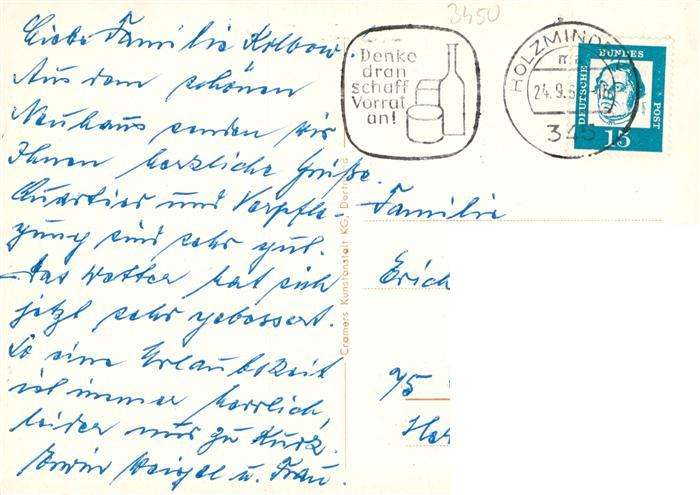 Liebe Familie Kolbow.
Aus dem schönen
Neuhaus senden wir
Ihnen herzliche Grüße.
Quartier und Verpfle-
gung sind sehr gut.
Das Wetter hat sich
jetzt sehr gebessert.
So eine Urlaubszeit
ist immer herrlich,
leider nur zu kurz.
Erwin Weigel u. Frau.
3450
Denke
dran
schaff
Vorrat
an!
HOLZMINDEN
24.9.6
345
DEUTSCHE BUNDESPOST
15
Familie
Erich
Cramers Kunstanstalt KG, Dortmund